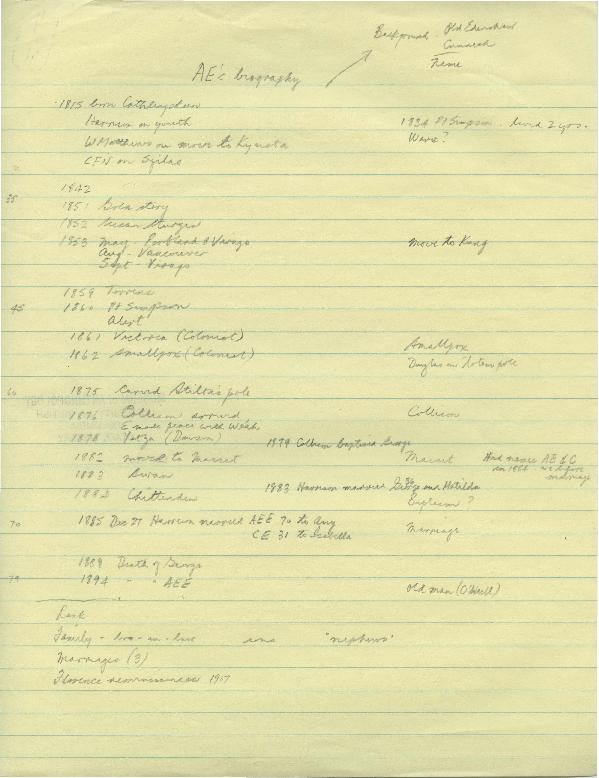 Background - Old Edenshaw
Cumareh
Name
AE's biography
1815 born Cathlingskun
Harrison on youth
1834 Ft Simpson - lived 2 yrs.
Ware?
W Matthews on move to Kyusta
CFN on Sgilae
1842
35
1851 Gold story
1852 Susan Sturges
1853 May - Portland & Virago
move to Kung
Aug - Vancouver
Sept - Virago
1859 Torrens
45 1860 Ft Simpson
Alert
1861 Victoria (Colonist)
1862 Smallpox (Colonist)
Smallpox
Douglas on totem pole
60 1875 Carved Stilta's pole
1876 Collison arrived
Collison
E made peace with Weah
1878 Yatza (Dawson)
1879 Collison baptised George
1882 move to Masset
Masset
Had names AE & C
in 1884 before
marriage
1883 Swan
1983 Harrison married George and Matilda
1884 Chittenden
Baptism?
70 1885 Dec 27 Harrison married AEE 70 to Amy
CE 31 to Isabella
Marriage
1889 Death of George
79 1894 " " AEE
Old man (O'Neill)
Rank
Family - bro-in-law sons "nephews"
Marriages (3)
Florence reminiscences 1967